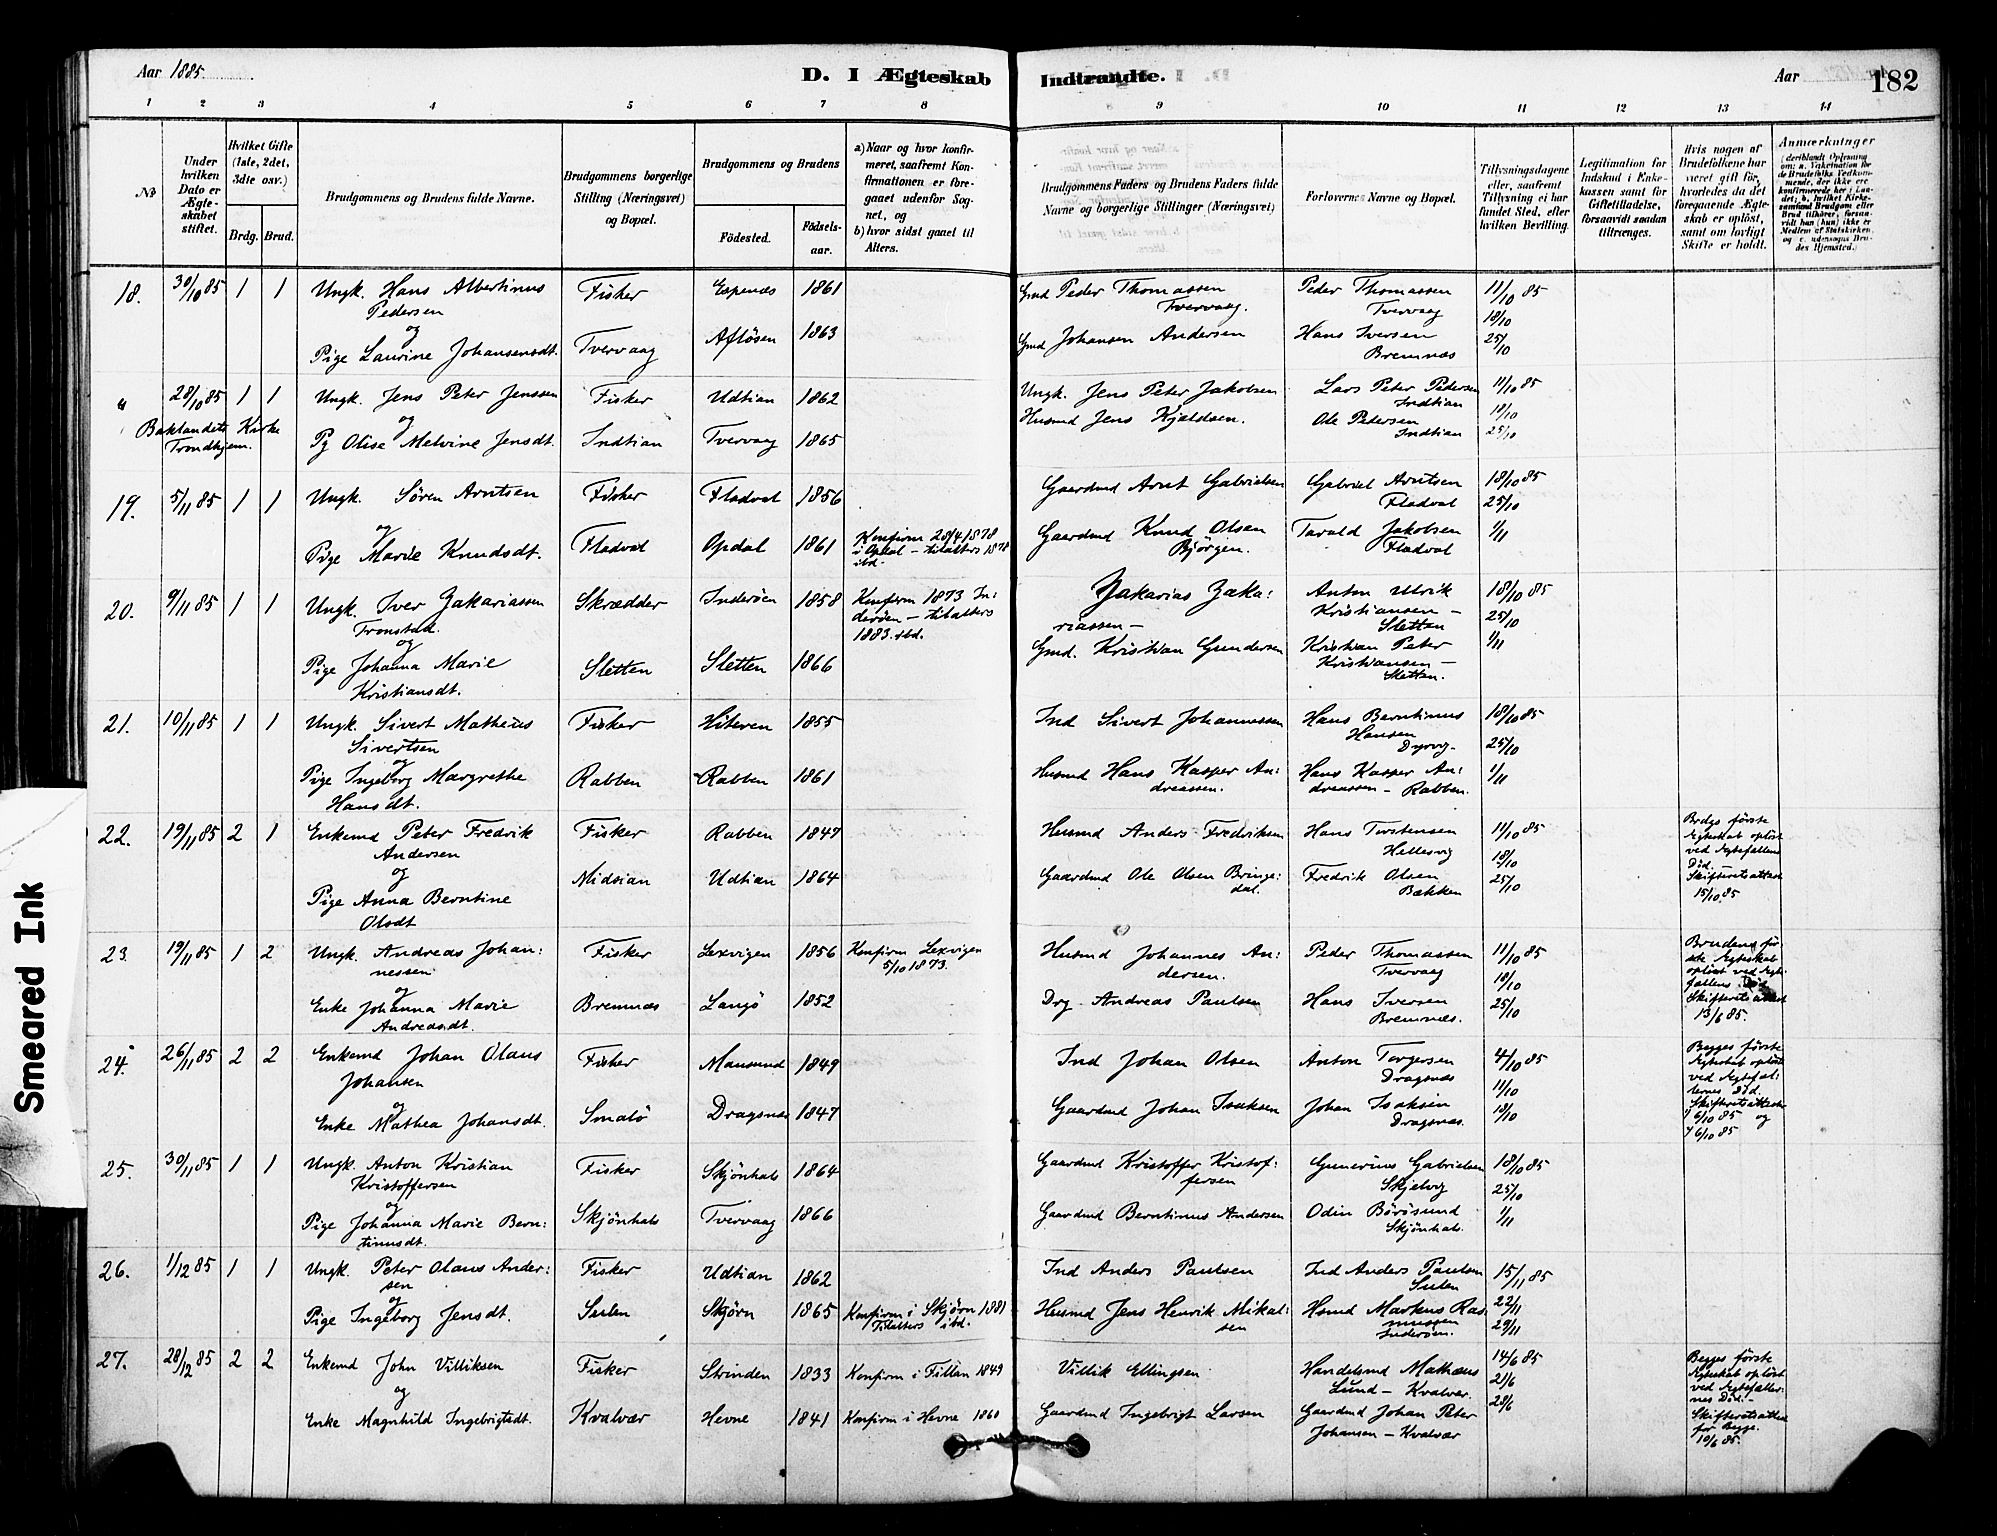 Aar 1885.
D. I Ægteskab Indtraadte.
Aar
182
1 2 3 4 5 6 7 8 9 10 11 12 13 14
No
Under hvilken Dato er Ægteskabet stiftet.
Hvilket Gifte (1ste, 2det, 3die osv.)
Brdg. Brud.
Brudgommens og Brudens fulde Navne.
Brudgommens borgerlige Stilling (Næringsvei) og Bopæl.
Brudgommens og Brudens
Fødested.
Fødselsaar.
a) Naar og hvor konfirmeret, saafremt Konfirmationen er foregaaet udenfor Sognet, og
b) hvor sidst gaaet til Alters.
Brudgommens Faders og Brudens Faders fulde Navne og borgerlige Stillinger (Næringsvei)
Forlovernes Navne og Bopæl.
Tillysningsdagene eller, saafremt Tillysning ei har fundet Sted, efter hvilken Bevilling.
Legitimation for Indskud i Enkekassen samt for Giftetilladelse, forsaavidt saadan tiltrænges.
Hvis nogen af Brudefolkene har været gift før, hvorledes da det foregaaende Ægteskab er opløst, samt om lovligt Skifte er holdt.
Anmærkninger
18. 30/10 85 1 1 Ungk. Hans Albertinus Fisker Espenæs 1861 Gmd Peder Thomassen Peder Thomassen 11/10 85
Pedersen Tvervaag. Tvervaag 18/10
og
Pige Laurine Johansensdt. Tvervaag Afløsen 1863 Gmd Johansen Andersen Hans Iversen 25/10
Bremnæs
" 28/10 85 1 1 Ungk. Jens Peter Jenssen Fisker Udtian 1862 Ungk. Jens Peter Jakobsen Lars Peter Pedersen 11/10 85
Indtian
Baklandets Kirke og Husmd Jens Kjeldsen. Ole Pedersen 18/10
Trondhjem. Pg Olise Melvine Jensdt. Indtian Tvervaag 1865 Indtian 25/10
19. 5/11 85 1 1 Ungk. Søren Arntsen Fisker Fladval 1856 Gaardmd Arnt Gabrielsen Gabriel Arntsen 18/10 85
Fladval 25/10
og
Pige Marie Knudsdt. Fladval Opdal 1861 Konfirm 28/4 1878 Gaardmd Knud Olsen Tarald Jakobsen 1/11
i Opdal – tilalters 1878 Bjørgen. Fladval
ibd.
20. 9/11 85 1 1 Ungk. Iver Zakariassen Skrædder Inderøen 1858 Konfirm 1873 In: Zakarias Zaka: Anton Ulrik 18/10 85
Tronstad. derøen – tilalters riassen – Kristiansen – 25/10
og 1883. ibd. Sletten
Pige Johanna Marie Sletten Sletten 1866 Gmd. Kristian Gundersen Kristian Peter 1/11
Kristiansdt. Kristiansen –
Sletten.
21. 10/11 85 1 1 Ungk. Sivert Matheus Fisker Hiteren 1855 Ind Sivert Johannessen Hans Berntinus 18/10 85
Sivertsen Hansen 25/10
og
Pige Ingeborg Margrethe Rabben Rabben 1861 Husmd Hans Kasper An: Hans Kasper An: 1/11
Hansdt. dreassen. dreassen – Rabben.
22. 19/11 85 2 1 Enkemd Peter Fredrik Fisker Rabben 1847 Husmd Anders Fredriksen Hans Torstensen 11/10 85 Brdgs første
Andersen Hellesvig 18/10 Ægteskab opløst
og ved Ægtefællens
Pige Anna Berntine Midtian Udtian 1864 Gaardmd Ole Olsen Bringe: Fredrik Olsen 25/10 Død. –
Olsdt dal. Bækken Skifteretsattest
15/10 85
23. 19/11 85 1 2 Ungk. Andreas Johan: Fisker Lexvigen 1856 Konfirm Lexvigen Husmd Johannes An: Peder Thomassen 11/10 85 Brudens før:
nessen 5/10 1873. dersen. Tvervaag 18/10 ste Ægteskab
og opløst ved Ægte:
Enke Johanna Marie Bremnæs Langø 1852 Drg. Andreas Paulsen Hans Iversen 25/10 fællens Død
Andreasdt. Bremnæs. Skifteretsattest
13/6 85.
24. 26/11 85 2 2 Enkemd Johan Olaus Fisker Mausund 1849 Ind Johan Olsen Anton Torgersen 4/10 85 Begges første
Johansen Dragsnæs 11/10 Ægteskab opløst
og ved Ægtefæl:
Enke Mathea Johansdt. Smalø Dragsnæs 1847 Gaardmd Johan Isaksen Johan Isaksen 18/10 lernes Død.
Dragsnæs. Skifteretsattester
6/10 85 og
6/10 85
25. 30/11 85 1 1 Ungk. Anton Kristian Fisker Skjønhals 1864 Gaardmd Kristoffer Kristof: Gunerius Gabrielsen 18/10 85
Kristoffersen fersen Skjelvig 25/10
og
Pige Johanna Marie Bern: Skjønhals Tvervaag 1866 Gaardmd Berntinus Andersen Odin Børøsund 1/11
tinusdt. Skjønhals.
26. 1/12 85 1 1 Ungk. Peter Olaus Ander: Fisker Udtian 1862 Ind Anders Paulsen Ind Anders Paulsen 15/11 85
sen Sulen
og
Pige Ingeborg Jensdt. Sulen Skjørn 1865 Konfirm i Skjørn 1881 Husmd Jens Henrik Mikal: Hsmd Markus Ras: 22/11
Tilalters ibd. sen mussen 29/11
Inderøen.
27. 28/12 85 2 2 Enkemd John Villiksen Fisker Strinden 1833 Konfirm i Fillan 1849 Villik Ellingsen Handelsmd Mathæus 14/6 85 Begges første
Lund – Kvalvær 21/6 Ægteskab opløst
og ved Ægtefæller:
Enke Magnhild Ingebrigtsdt. Kvalvær Hevne 1841 Konfirm i Hevne 1860 Gaardmd Ingebrigt Larsen Gaardmd Johan Peter 28/6 nes Død. –
Johansen – Kvalvær Skifteretsattest
for Begge.
10/6 85.
Smeared Ink